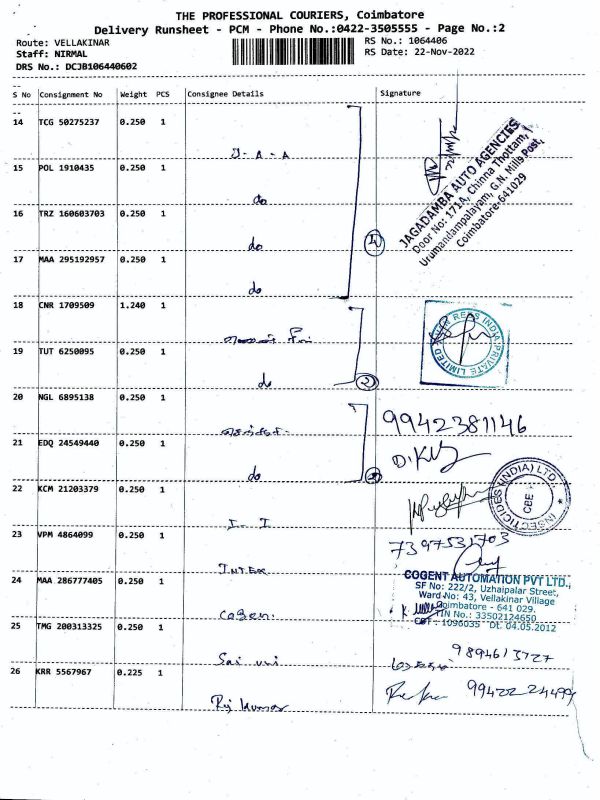 THE PROFESSIONAL COURIERS, Coimbatore
Delivery Runsheet - PCM - Phone No.:0422-3505555 - Page No.:2
Route: VELLAKINAR
RS No.: 1064406
Staff: NIRMAL
RS Date: 22-Nov-2022
DRS No.: DCJB106440602
S No Consignment No Weight PCS Consignee Details Signature
14 TCG 50275237 0.250 1
J-A-A
15 POL 1910435 0.250 1
do
16 TRZ 160603703 0.250 1
do
17 MAA 295192957 0.250 1
do
4
JAGADAMBA AUTO AGENCIES
Door No: 171A, Chinna Thottam,
Urumandampalayam, G.N. Mills Post,
Coimbatore-641029
18 CNR 1709509 1.240 1
19 TUT 6250095 0.250 1
do
2
INDIA PRIVATE LIMITED
20 NGL 6895138 0.250 1
9942381146
21 EDQ 24549440 0.250 1
do
22 KCM 21203379 0.250 1
I - I
INSECTICIDES (INDIA) LTD.
CBE
23 VPM 4864099 0.250 1
7397531703
INTEK
24 MAA 286777405 0.250 1
COGENT AUTOMATION PVT LTD.,
SF No: 222/2, Uzhaipalar Street,
Ward No: 43, Vellakinar Village
Coimbatore - 641 029.
TIN No.: 33502124650
CST : 1096035 Dt. 04.05.2012
Cogen.
25 TMG 200313325 0.250 1
9894613727
Sai uni
26 KRR 5567967 0.225 1
Raj kumar